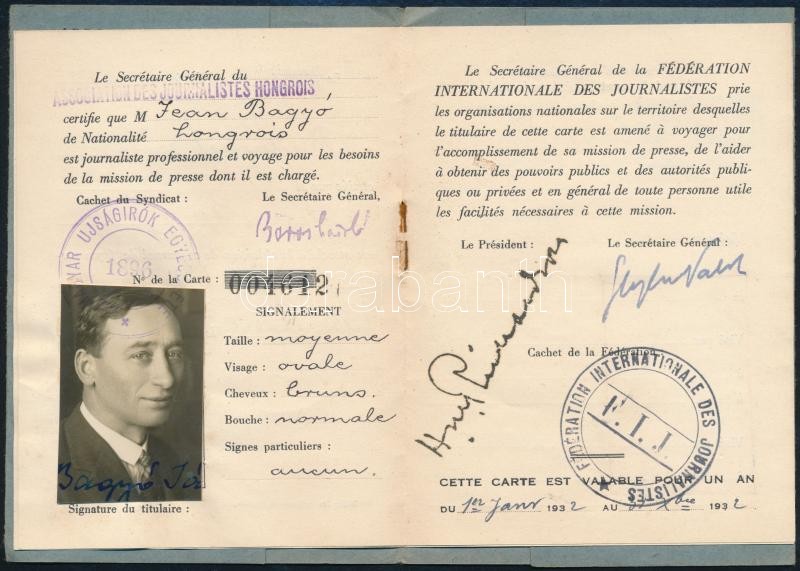 Le Secrétaire Général du
ASSOCIATION DES JOURNALISTES HONGROIS
certifie que M Jean Bagyó
de Nationalité hongrois
est journaliste professionnel et voyage pour les besoins
de la mission de presse dont il est chargé.
Cachet du Syndicat :
Le Secrétaire Général,
UJSÁGIRÓK
1896
N° de la Carte : 001612
SIGNALEMENT
Taille : moyenne
Visage : ovale
Cheveux : bruns.
Bouche : normale
Signes particuliers :
aucun.
Bagyó
Signature du titulaire :
Le Secrétaire Général de la FÉDÉRATION
INTERNATIONALE DES JOURNALISTES prie
les organisations nationales sur le territoire desquelles
le titulaire de cette carte est amené à voyager pour
l'accomplissement de sa mission de presse, de l'aider
à obtenir des pouvoirs publics et des autorités publi-
ques ou privées et en général de toute personne utile
les facilités nécessaires à cette mission.
Le Président :
Le Secrétaire Général :
Cachet de la Fédération
FÉDÉRATION INTERNATIONALE DES JOURNALISTES
F.I.J.
CETTE CARTE EST VALABLE POUR UN AN
DU 1er Janv 1932 AU 31 Xbre 1932
darabanth.com